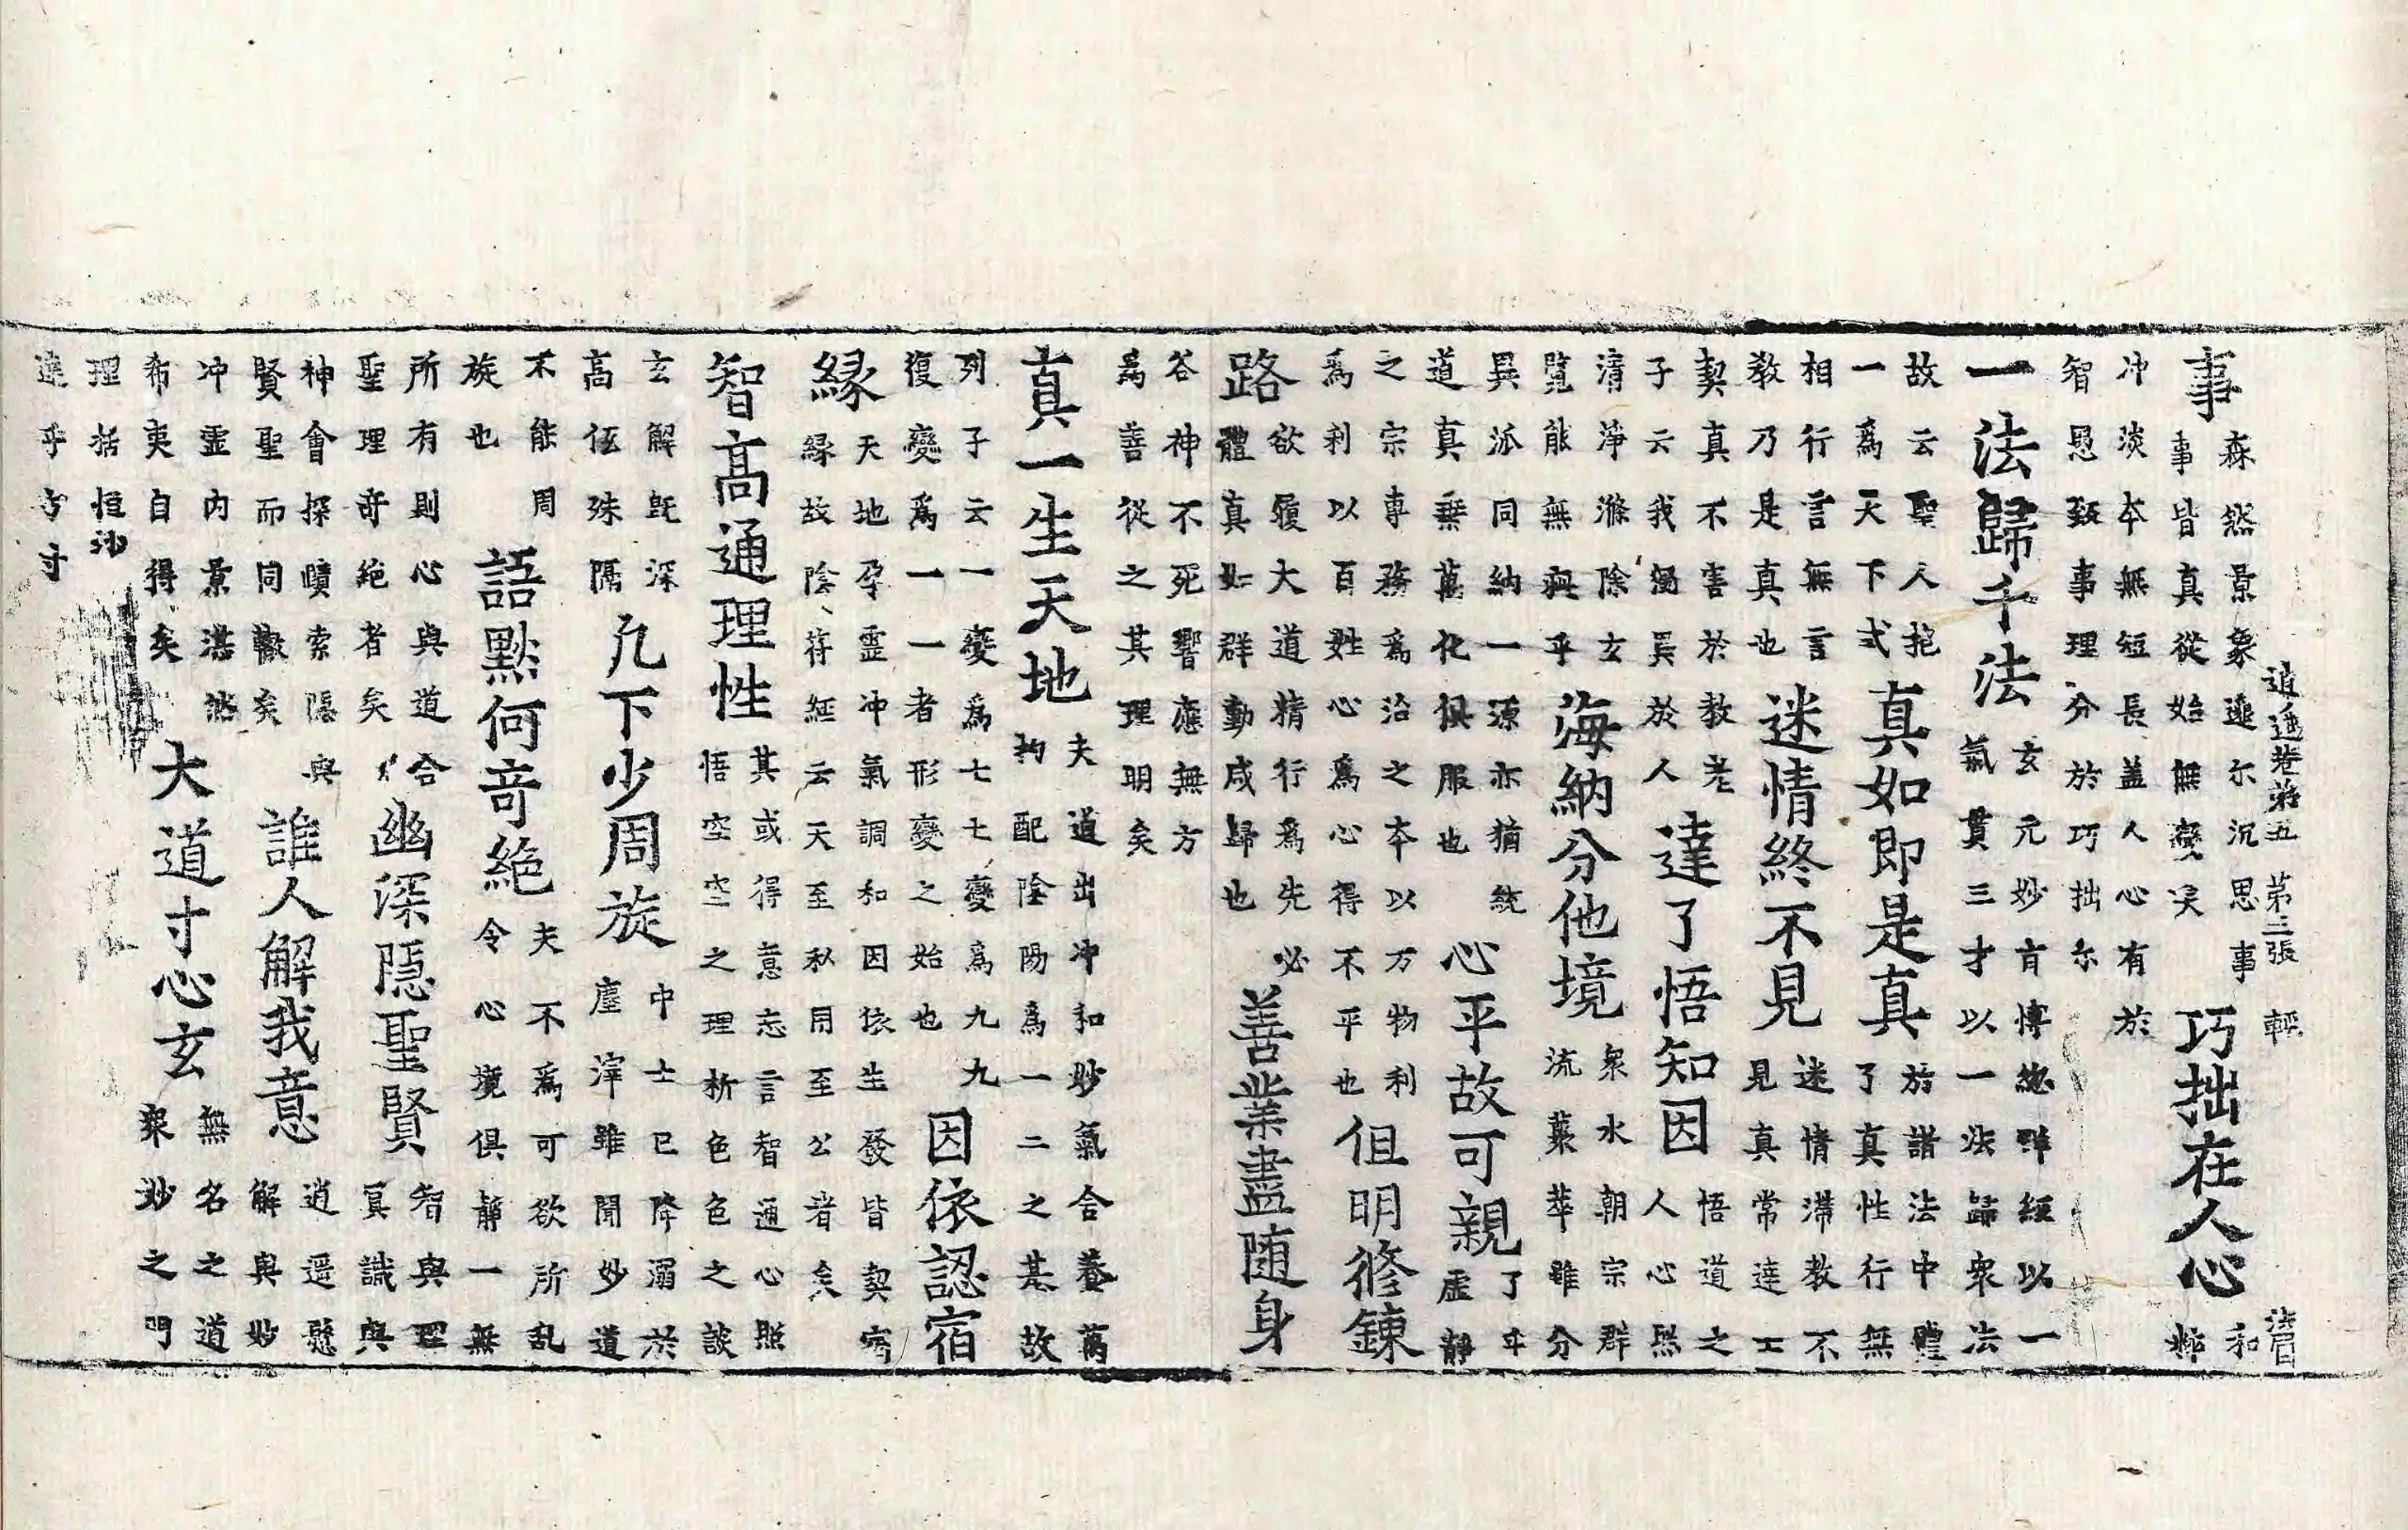 逍遥卷第五 第三張 輕 法昌
事森然景象遞尓沉思事
事皆真從始無變矣巧拙在人心和
粹
冲淡本無短長盖人心有於
智愚致事理分於巧拙尔
一法歸千法玄元妙育博總群經以一
氣貫三才以一法歸衆法
故云聖人抱
一爲天下式真如即是真於諸法中體
了真性行無
相行言無言
教乃是真也迷情終不見迷情滯教不
見真常達士
契真不害於教老
子云我獨異於人達了悟知因悟道之
人心熙
清淨滌除玄
覽能無疵乎海納分他境衆水朝宗群
流叢萃雖分
異派同納一源亦猶統
道真無萬化俱服也心平故可親了平
虛靜
之宗專務爲治之本以万物利
爲利以百姓心爲心得不平也但明修鍊
路欲履大道精行爲先必
體真如群動咸歸也善業盡随身
谷神不死響應無方
爲善從之其理明矣
真一生天地夫道出冲和妙氣合養萬
均配陰陽爲一二之基故
列子云一變爲七七變爲九九
復變爲一一者形變之始也因依認宿
緣天地孕靈冲氣調和因依生發皆契宿
緣緣故陰符經云天至私用至公者矣
智高通理性其或得意忘言智通心照
悟空空之理析色色之談
玄解既深
高低殊隔凡下少周旋中士已降溺於
塵滓雖聞妙道
不能周
旋也語默何奇絕夫不爲可欲所乱
令心境俱靜一無
所有則心與道合
聖理奇絕者矣幽深隱聖賢智與理
冥識與
神會探賾索隱與
賢聖而同轍矣誰人解我意逍遥懸
解與妙
冲靈內景湛然
希夷自得矣大道寸心玄無名之道
衆妙之門
理括恒沙
達乎方寸